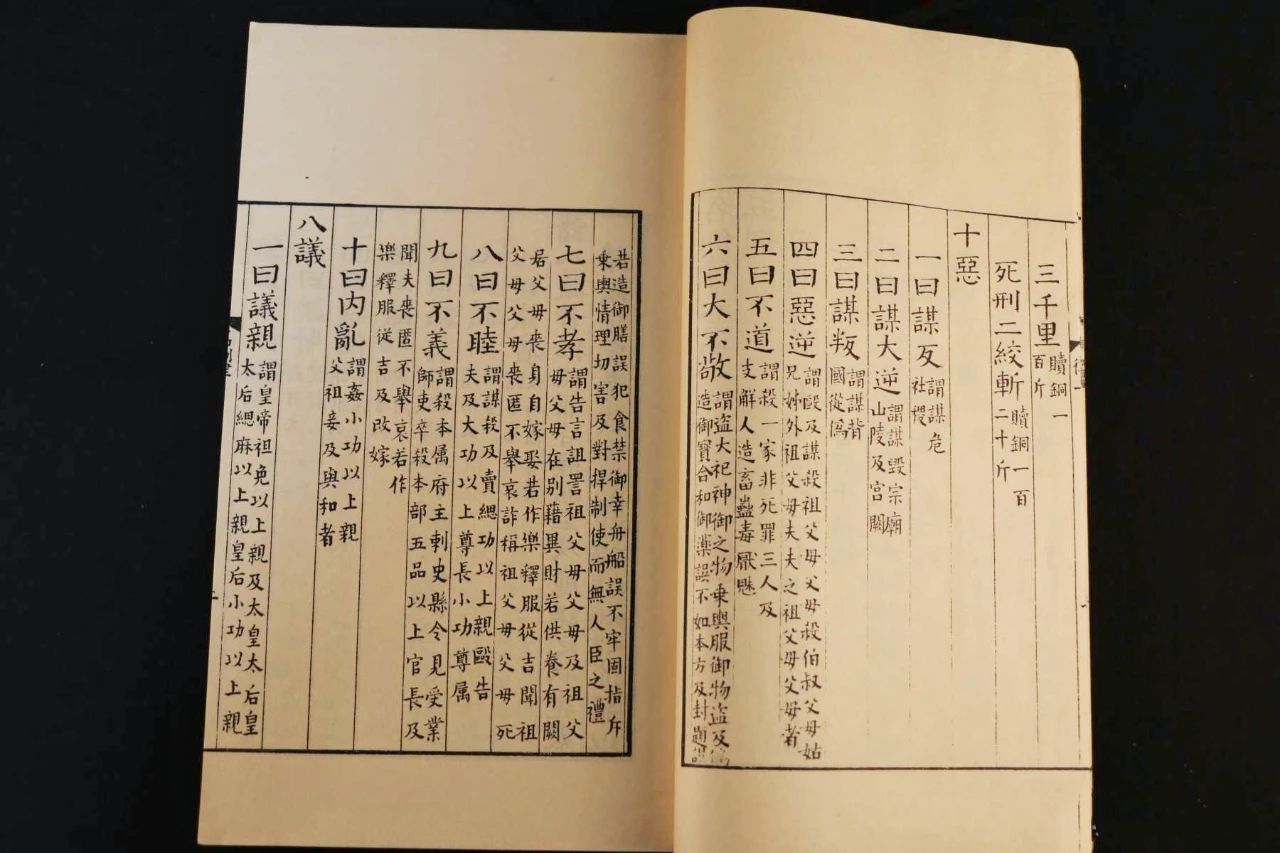 三千里贖銅一百斤
死刑二絞斬贖銅一百二十斤
十惡
一曰謀反謂謀危社稷
二曰謀大逆謂謀毀宗廟山陵及宮闕
三曰謀叛謂謀背國從偽
四曰惡逆謂毆及謀殺祖父母父母殺伯叔父母姑兄姊外祖父母夫夫之祖父母父母者
五曰不道謂殺一家非死罪三人及支解人造畜蠱毒厭魅
六曰大不敬謂盜大祀神御之物乘輿服御物盜及偽造御寶合和御藥誤不如本方及封題誤
若造御膳誤犯食禁御幸舟船誤不牢固指斥乘輿情理切害及對捍制使而無人臣之禮
七曰不孝謂告言詛詈祖父母父母及祖父母父母在別籍異財若供養有闕
居父母喪身自嫁娶若作樂釋服從吉聞祖父母父母喪匿不舉哀詐稱祖父母父母死
八曰不睦謂謀殺及賣緦功以上親毆告夫及大功以上尊長小功尊属
九曰不義謂殺本属府主刺史縣令見受業師吏卒殺本部五品以上官長及
聞夫喪匿不舉哀若作樂釋服從吉及改嫁
十曰內亂謂姦小功以上親父祖妾及與和者
八議
一曰議親謂皇帝祖免以上親及太皇太后皇太后緦麻以上親皇后小功以上親